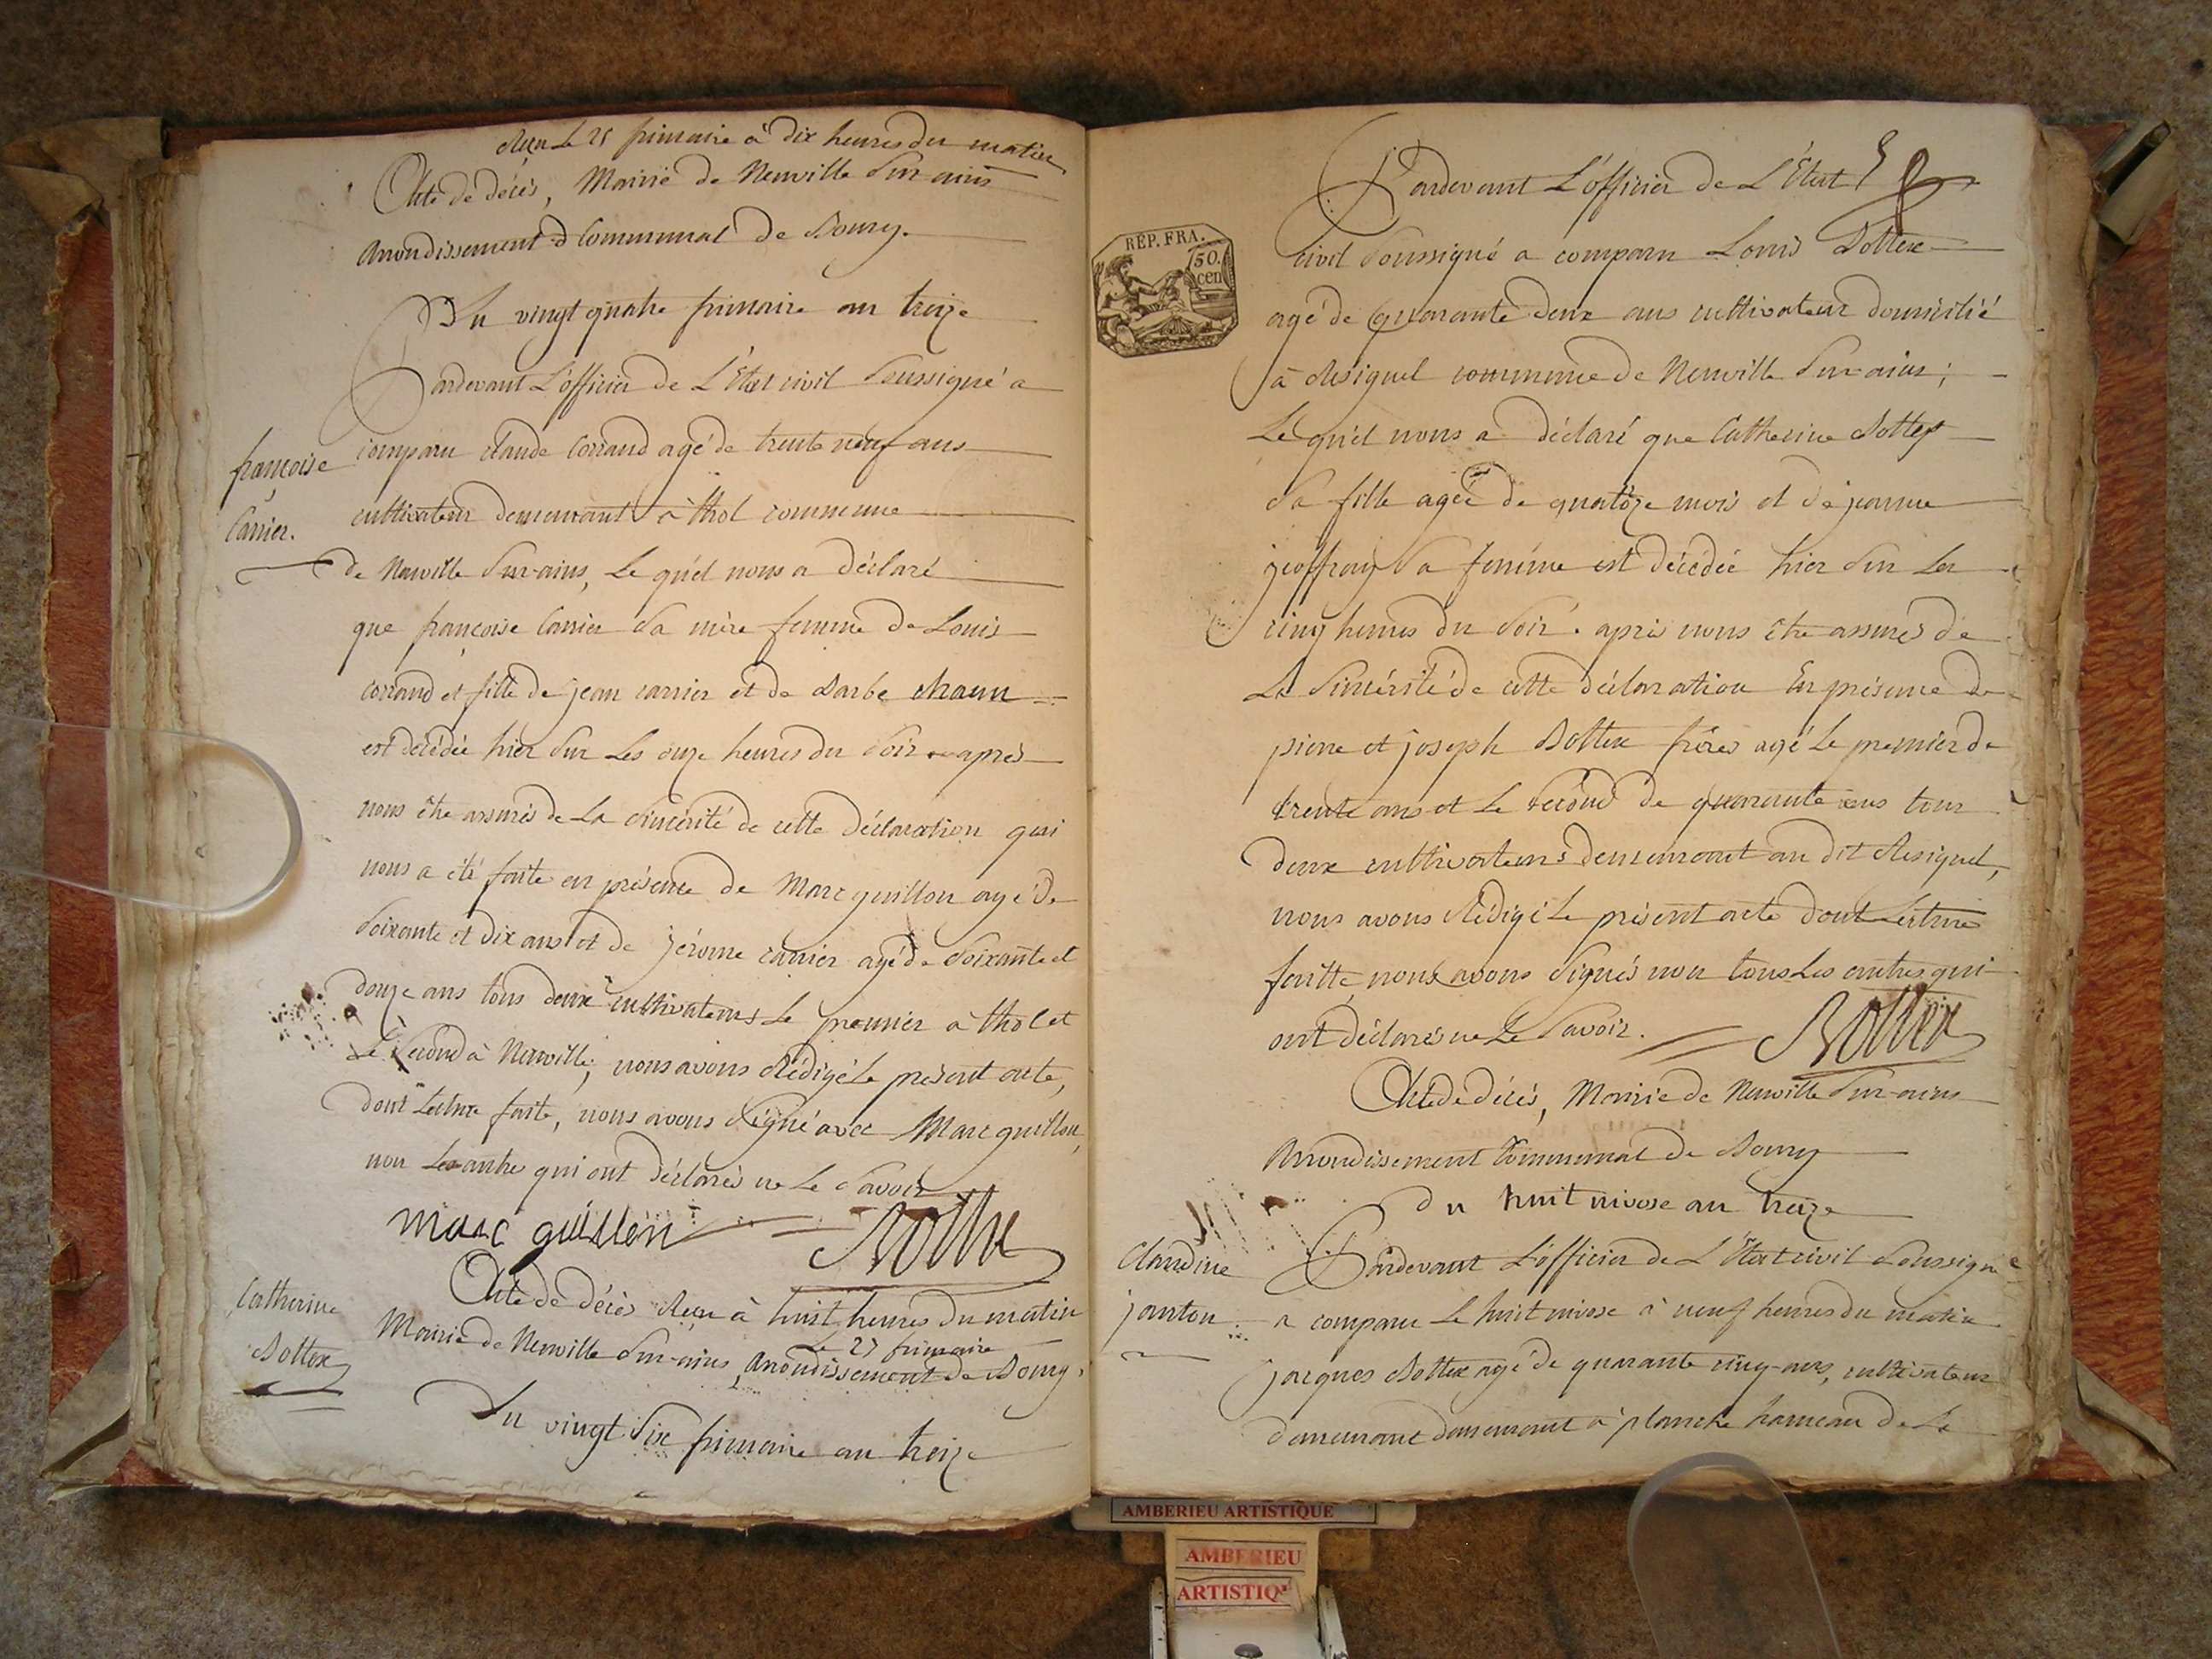 Reçu le 25 frimaire à dix heures du matin
Acte de décès, Mairie de Neuville Sur-ains
Arrondissement Communal de Bourg.
Du vingt quatre frimaire an treize
Pardevant L'officier de L'Etat civil Soussigné a
françoise
Carrier.
comparu claude Corrand agé de trente neuf ans
cultivateur demeurant à thol commune
de Neuville Sur-ains, Le quel nous a déclaré
que françoise Carrier Sa mère femme de Louis
corrand et fille de jean carrier et de Barbe
est décédée hier Sur Les onze heures du Soir après
nous être assurés de La Sincérité de cette Déclaration qui
nous a été faite en présence de Marc guillon agé de
Soixante et dix ans et de jérome carrier agé de Soixante et
douze ans tous deux cultivateurs Le premier à thol et
Le Second à Neuville, nous avons Rédigé Le présent acte,
dont Lecture faite, nous avons Signé avec Marc guillon,
non Les autre qui ont déclarés ne Le Savoir
marc guillon Bottex
Catherine
Bottex
Acte de décès Reçu à huit heures du matin
Le 27 frimaire
Mairie de Neuville Sur-ains, Arrondissement de Bourg.
Du vingt Six frimaire an treize
REP. FRA.
50.
cen
Pardevant L'officier de L'Etat
civil Soussigné a comparu Louis Bottex
agé de quarante deux ans cultivateur domicilié
à Resignel commune de Neuville Sur-ains;
Le quel nous a déclaré que Catherine Bottex
Sa fille agée de quatorze mois et de jeanne
geoffray Sa femme est décédée hier Sur Les
cinq heures du Soir. après nous être assurés de
La Sincérité de cette déclaration En présence de
pierre et joseph Bottex frères agé Le premier de
trente ans et Le Second de quarante ans tous
deux cultivateurs demeurant au dit Resignel,
nous avons Rédigé Le présent acte dont Lecture
faitte, nous avons Signés non tous Les autres qui
ont déclarés ne Le Savoir. Bottex
Acte de décès, Mairie de Neuville Sur-ains
Arrondissement Communal de Bourg
Du huit nivose an treize
Claudine
janton
Pardevant L'officier de L'Etat civil Soussigné
a comparu Le huit nivose à neuf heures du matin
jacques Bottex agé de quarante cinq-ans, cultivateur
demeurant demeurant à planche hameau de La
AMBERIEU ARTISTIQUE
AMBERIEU
ARTISTIQ